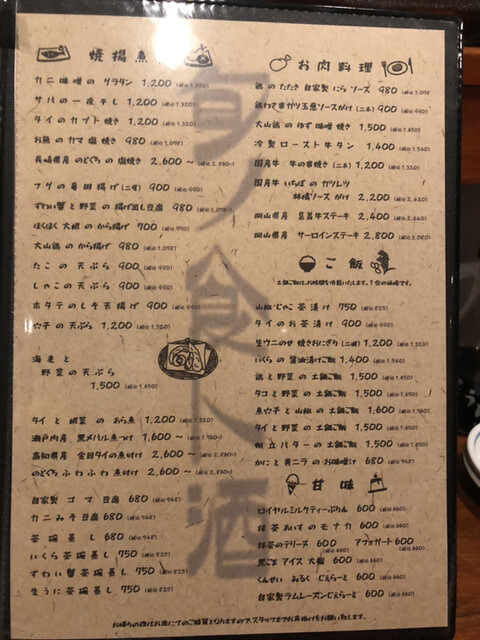 焼揚魚
カニ味噌のグラタン 1,200 (税込1,320)
サバの一夜干し 1,200 (税込1,320)
タイのカブト焼き 1,200 (税込1,320)
お魚のカマ塩焼き 980 (税込1,078)
長崎県産のどぐろの塩焼き 2,600～ (税込2,860～)
フグの唐田揚げ(二個) 900 (税込990)
ずわい蟹と野菜の揚げ出し豆腐 980 (税込1,078)
ほくほく大根のから揚げ 700 (税込770)
大山鶏のから揚げ 980 (税込1,078)
たこの天ぷら 900 (税込990)
しゃこの天ぷら 900 (税込990)
ホタテのしそ天揚げ 900 (税込990)
穴子の天ぷら 1,200 (税込1,320)
海老と
野菜の天ぷら
1,500 (税込1,650)
タイと根菜のあら煮 1,200 (税込1,320)
瀬戸内産 黒メバル煮つけ 1,600～ (税込1,760～)
高知県産 金目ダイの煮付け 2,600～ (税込2,860～)
のどぐろふわふわ煮付け 2,600～ (税込2,860～)
自家製ゴマ豆腐 680 (税込748)
カニみそ豆腐 680 (税込748)
茶碗蒸し 680 (税込748)
いくら茶碗蒸し 750 (税込825)
ずわい蟹茶碗蒸し 750 (税込825)
生うに茶碗蒸し 750 (税込825)
お肉料理
鶏のたたき 自家製にらソース 980 (税込1,078)
鶏わさ串ガツ玉葱ソースがけ(二本) 900 (税込990)
大山鶏のゆず味噌焼き 1,500 (税込1,650)
冷製ロースト牛タン 1,400 (税込1,540)
国産牛 牛の串焼き(二本) 1,200 (税込1,320)
国産牛いちぼのカツレツ
林檎ソースがけ 2,200 (税込2,420)
岡山県産 奈義牛ステーキ 2,400 (税込2,640)
岡山県産 サーロインステーキ 2,800 (税込3,080)
ご飯
土鍋ご飯は、お時間を頂戴いたします。1合の価格です。
山椒じゃこ茶漬け 750 (税込825)
タイのお茶漬け 900 (税込990)
生ウニのせ焼きおにぎり(二個) 1,200 (税込1,320)
いくらの醤油漬けご飯 1,400 (税込1,540)
鶏と野菜の土鍋ご飯 1,500 (税込1,650)
タコと野菜の土鍋ご飯 1,500 (税込1,650)
煮穴子と山椒の土鍋ご飯 1,600 (税込1,760)
タイと野菜の土鍋ご飯 1,500 (税込1,650)
帆立バターの土鍋ご飯 1,500 (税込1,650)
かにと黄ニラのお味噌汁 680 (税込748)
甘味
ロイヤルミルクティーぷりん 600 (税込660)
抹茶あいすのモナカ 600 (税込660)
抹茶のテリーヌ 600 (税込660) アフォガート 600 (税込660)
黒ごまアイス大福 600 (税込660)
くんせい みるくじぇらーと 600 (税込660)
自家製ラムレーズンじぇらーと 600 (税込660)
お帰りの際はお席にてのご精算となりますので、スタッフまでお声掛けをお願い致します。